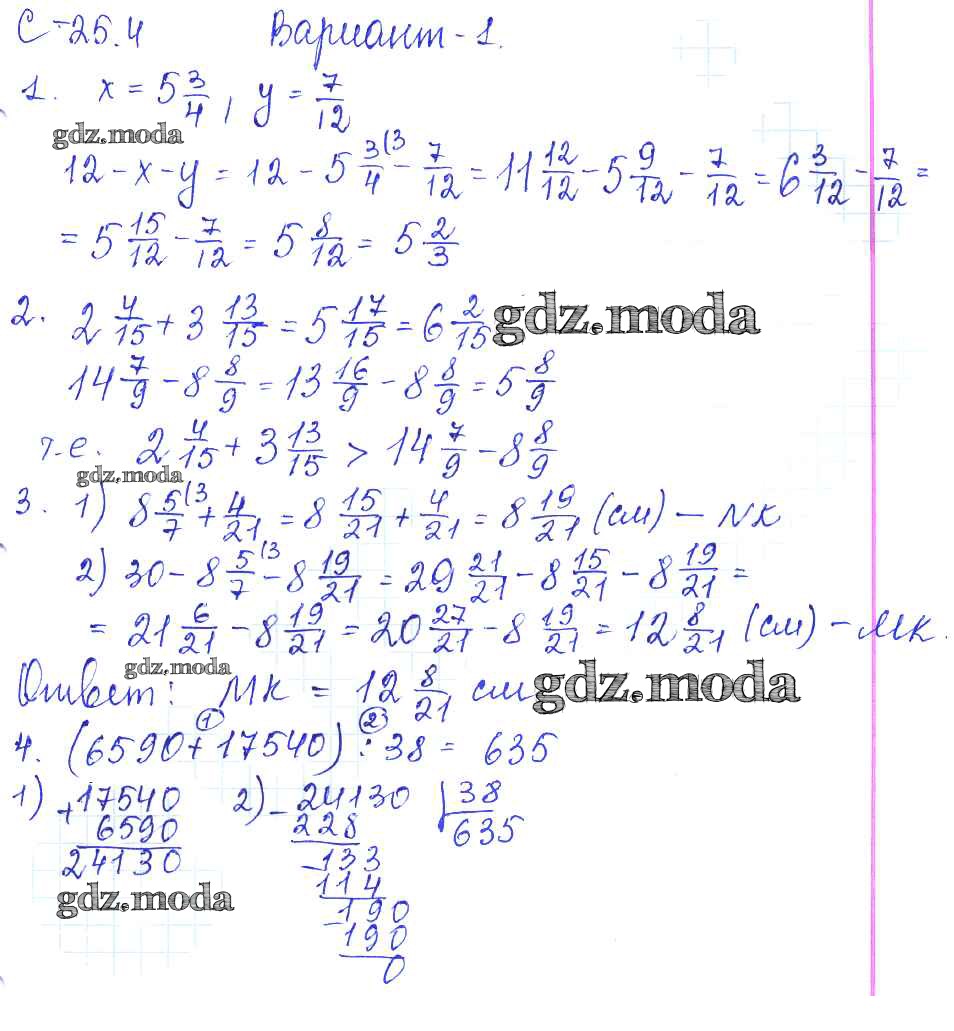 С-25.4 Вариант-1.
1. x = 5 3/4, y = 7/12
gdz.moda
12 - x - y = 12 - 5 3/4 (3 - 7/12 = 11 12/12 - 5 9/12 - 7/12 = 6 3/12 - 7/12 =
= 5 15/12 - 7/12 = 5 8/12 = 5 2/3
2. 2 4/15 + 3 13/15 = 5 17/15 = 6 2/15 gdz.moda
14 7/9 - 8 8/9 = 13 16/9 - 8 8/9 = 5 8/9
т.е. 2 4/15 + 3 13/15 > 14 7/9 - 8 8/9
gdz.moda
3. 1) 8 5/7 (3 + 4/21 = 8 15/21 + 4/21 = 8 19/21 (см) - NK
2) 30 - 8 5/7 (3 - 8 19/21 = 29 21/21 - 8 15/21 - 8 19/21 =
= 21 6/21 - 8 19/21 = 20 27/21 - 8 19/21 = 12 8/21 (см) - MK.
gdz.moda
Ответ: MK = 12 8/21 см gdz.moda
1 2
4. (6590 + 17540) : 38 = 635
1) + 17540 2) - 24130 38
6590 228 635
24130 - 133
114
gdz.moda
- 190
190
0